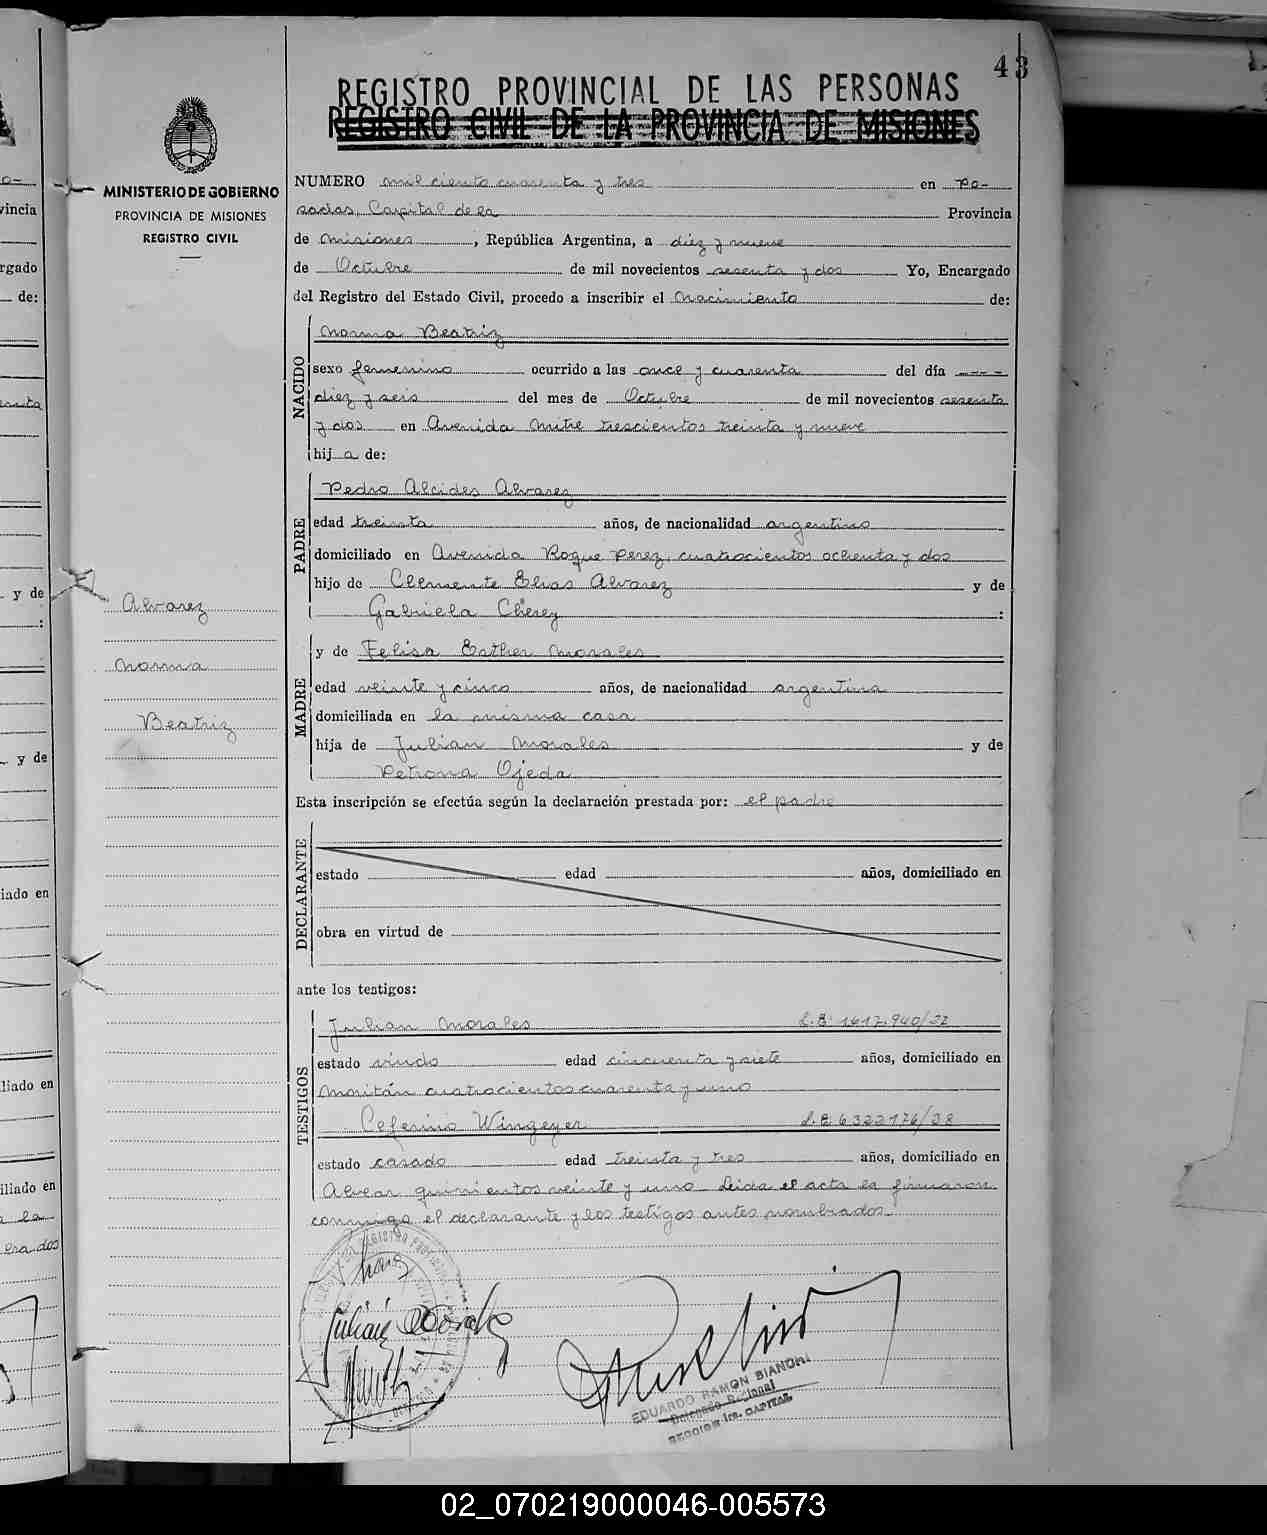 43
REGISTRO PROVINCIAL DE LAS PERSONAS
REGISTRO CIVIL DE LA PROVINCIA DE MISIONES
MINISTERIO DE GOBIERNO
PROVINCIA DE MISIONES
REGISTRO CIVIL
Alvarez
Norma
Beatriz
NUMERO mil ciento cuarenta y tres en Po-
sadas, Capital de la Provincia
de Misiones, República Argentina, a diez y nueve
de Octubre de mil novecientos sesenta y dos Yo, Encargado
del Registro del Estado Civil, procedo a inscribir el Nacimiento de:
NACIDO
Norma Beatriz
sexo femenino ocurrido a las once y cuarenta del día ----
diez y seis del mes de Octubre de mil novecientos sesenta
y dos en Avenida Mitre trescientos treinta y nueve
hij a de:
PADRE
Pedro Alcides Alvarez
edad treinta años, de nacionalidad argentino
domiciliado en Avenida Roque Perez, cuatrocientos ochenta y dos
hijo de Clemente Elias Alvarez y de
Gabriela Cherey :
MADRE
y de Felisa Esther Morales
edad veinte y cinco años, de nacionalidad argentina
domiciliada en la misma casa
hija de Julian Morales y de
Petrona Ojeda
Esta inscripción se efectúa según la declaración prestada por: el padre
DECLARANTE
estado edad años, domiciliado en
obra en virtud de
ante los testigos:
TESTIGOS
Julian Morales L.E: 1617.940/32
estado viudo edad cincuenta y siete años, domiciliado en
cuatrocientos cuarenta y uno
Ceferino Wingeyer L.E 6322176/38
estado casado edad treinta y tres años, domiciliado en
Alvear quinientos veinte y uno Leida el acta la firmaron
conmigo el declarante y los testigos antes nombrados.
Julian Morales
EDUARDO RAMON BIANCHI
Delegado Regional
SECCION 1ra. CAPITAL
y de
:
y de
vincia
rgado
de:
iado en
liado en
iliado en
02_070219000046-005573